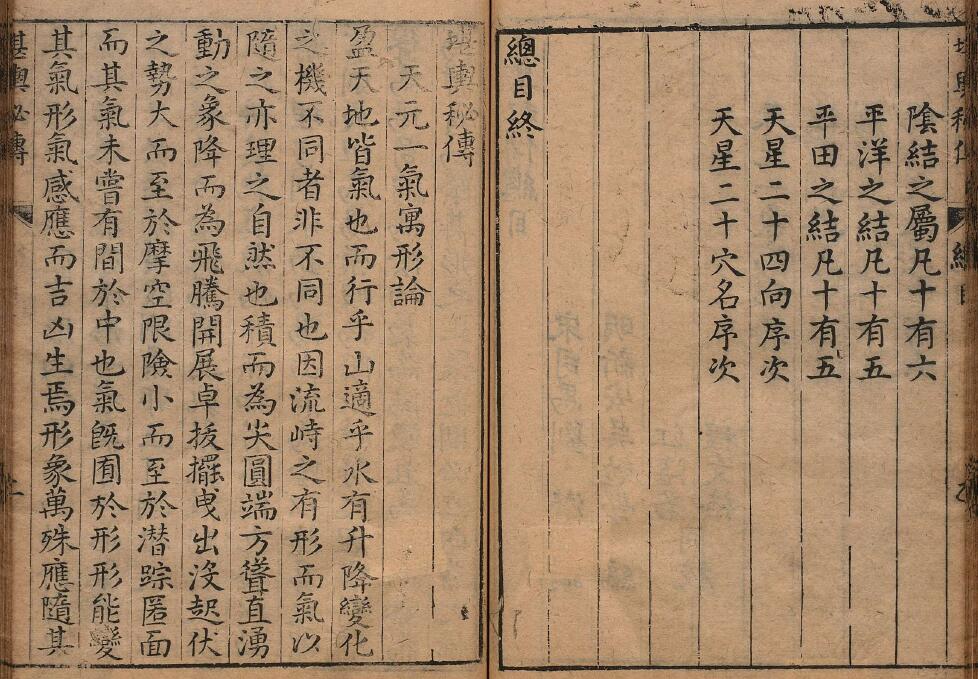 陰結之屬凡十有六
平洋之結凡十有五
平田之結凡十有五
天星二十四向序次
天星二十穴名序次
總目終
堪輿秘傳
天元一氣寓形論
盈天地皆氣也而行乎山適乎水有升降變化
之機不同者非不同也因流峙之有形而氣以
隨之亦理之自然也積而為尖圓端方聳直湧
動之象降而為飛騰開展卓拔擺曳出沒起伏
之勢大而至於摩空限險小而至於潛踪匿面
而其氣未嘗有間於中也氣旣囿於形形能變
其氣形氣感應而吉凶生焉形象萬殊應隨其
堪輿秘傳